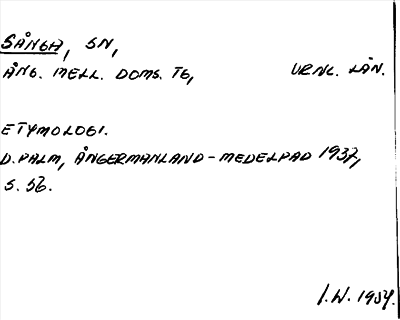 SÅNGA, SN,
ÅNG. MELL. DOMS. TG, VRNL. LÄN.
ETYMOLOGI.
D. PALM, ÅNGERMANLAND-MEDELPAD 1937,
S. 56.
I. W. 1954.